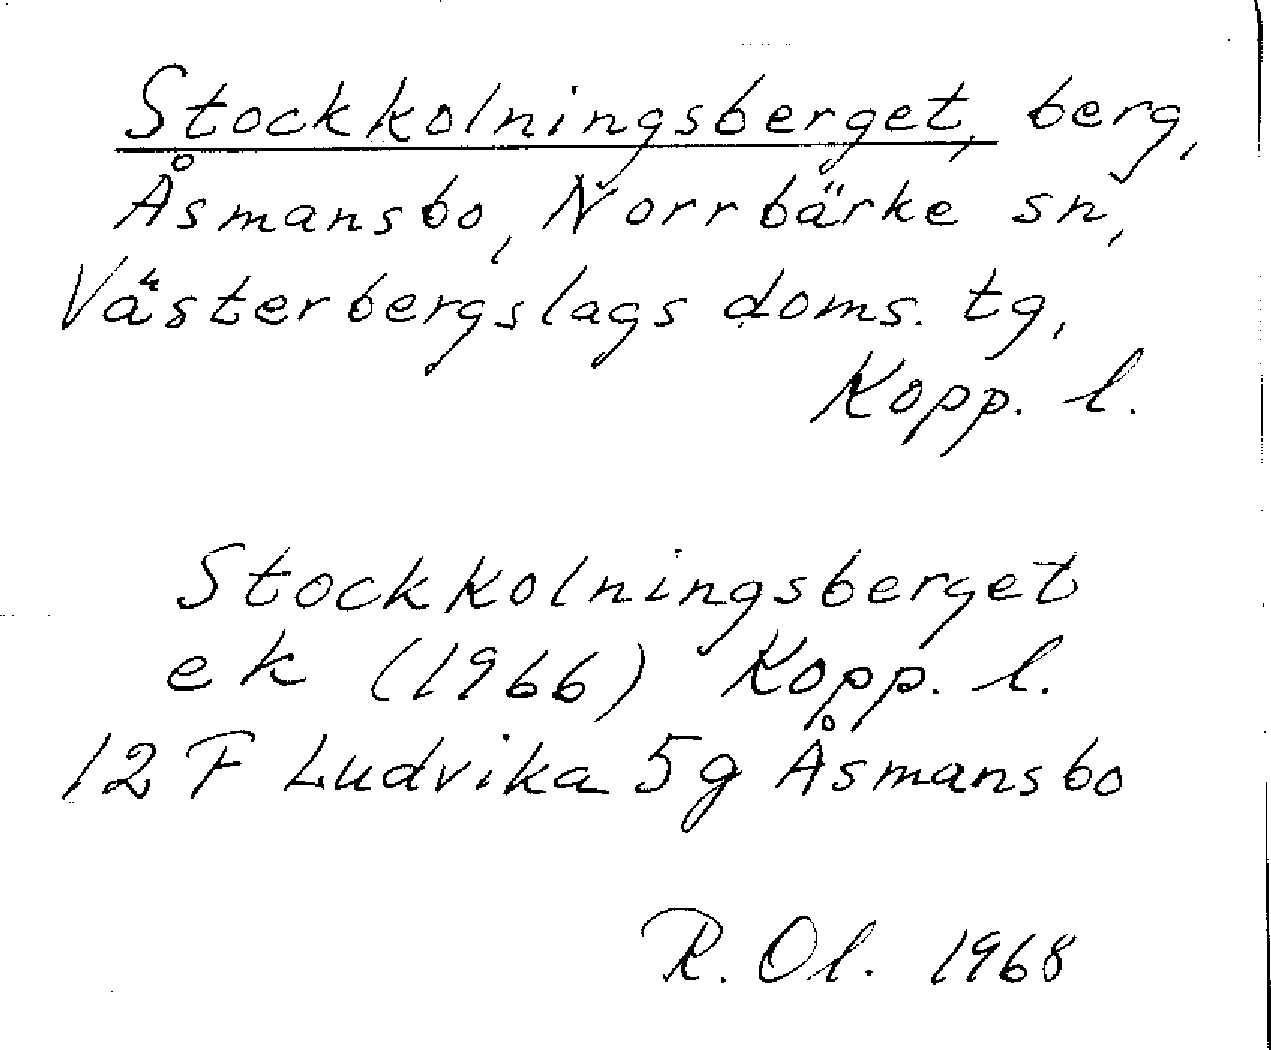 Stockkolningsberget, berg,
Åsmansbo, Norrbärke sn,
Västerbergslags doms. tg,
Kopp. l.
Stockkolningsberget
ek (1966) Kopp. l.
12 F Ludvika 5g Åsmansbo
R. Ol. 1968